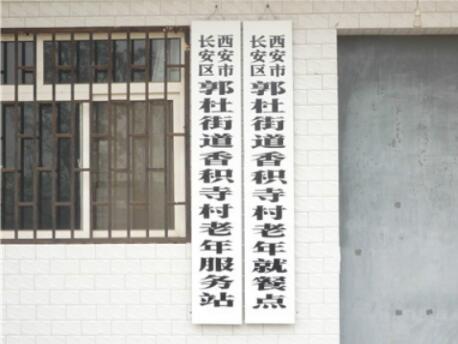 西安市
长安区
郭杜街道香积寺村老年服务站
西安市
长安区
郭杜街道香积寺村老年就餐点